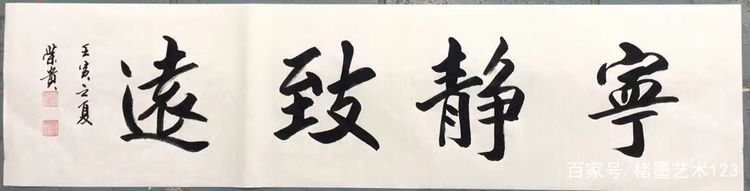 寧靜致遠
壬寅之夏
榮貴
百家号/楮墨艺术123